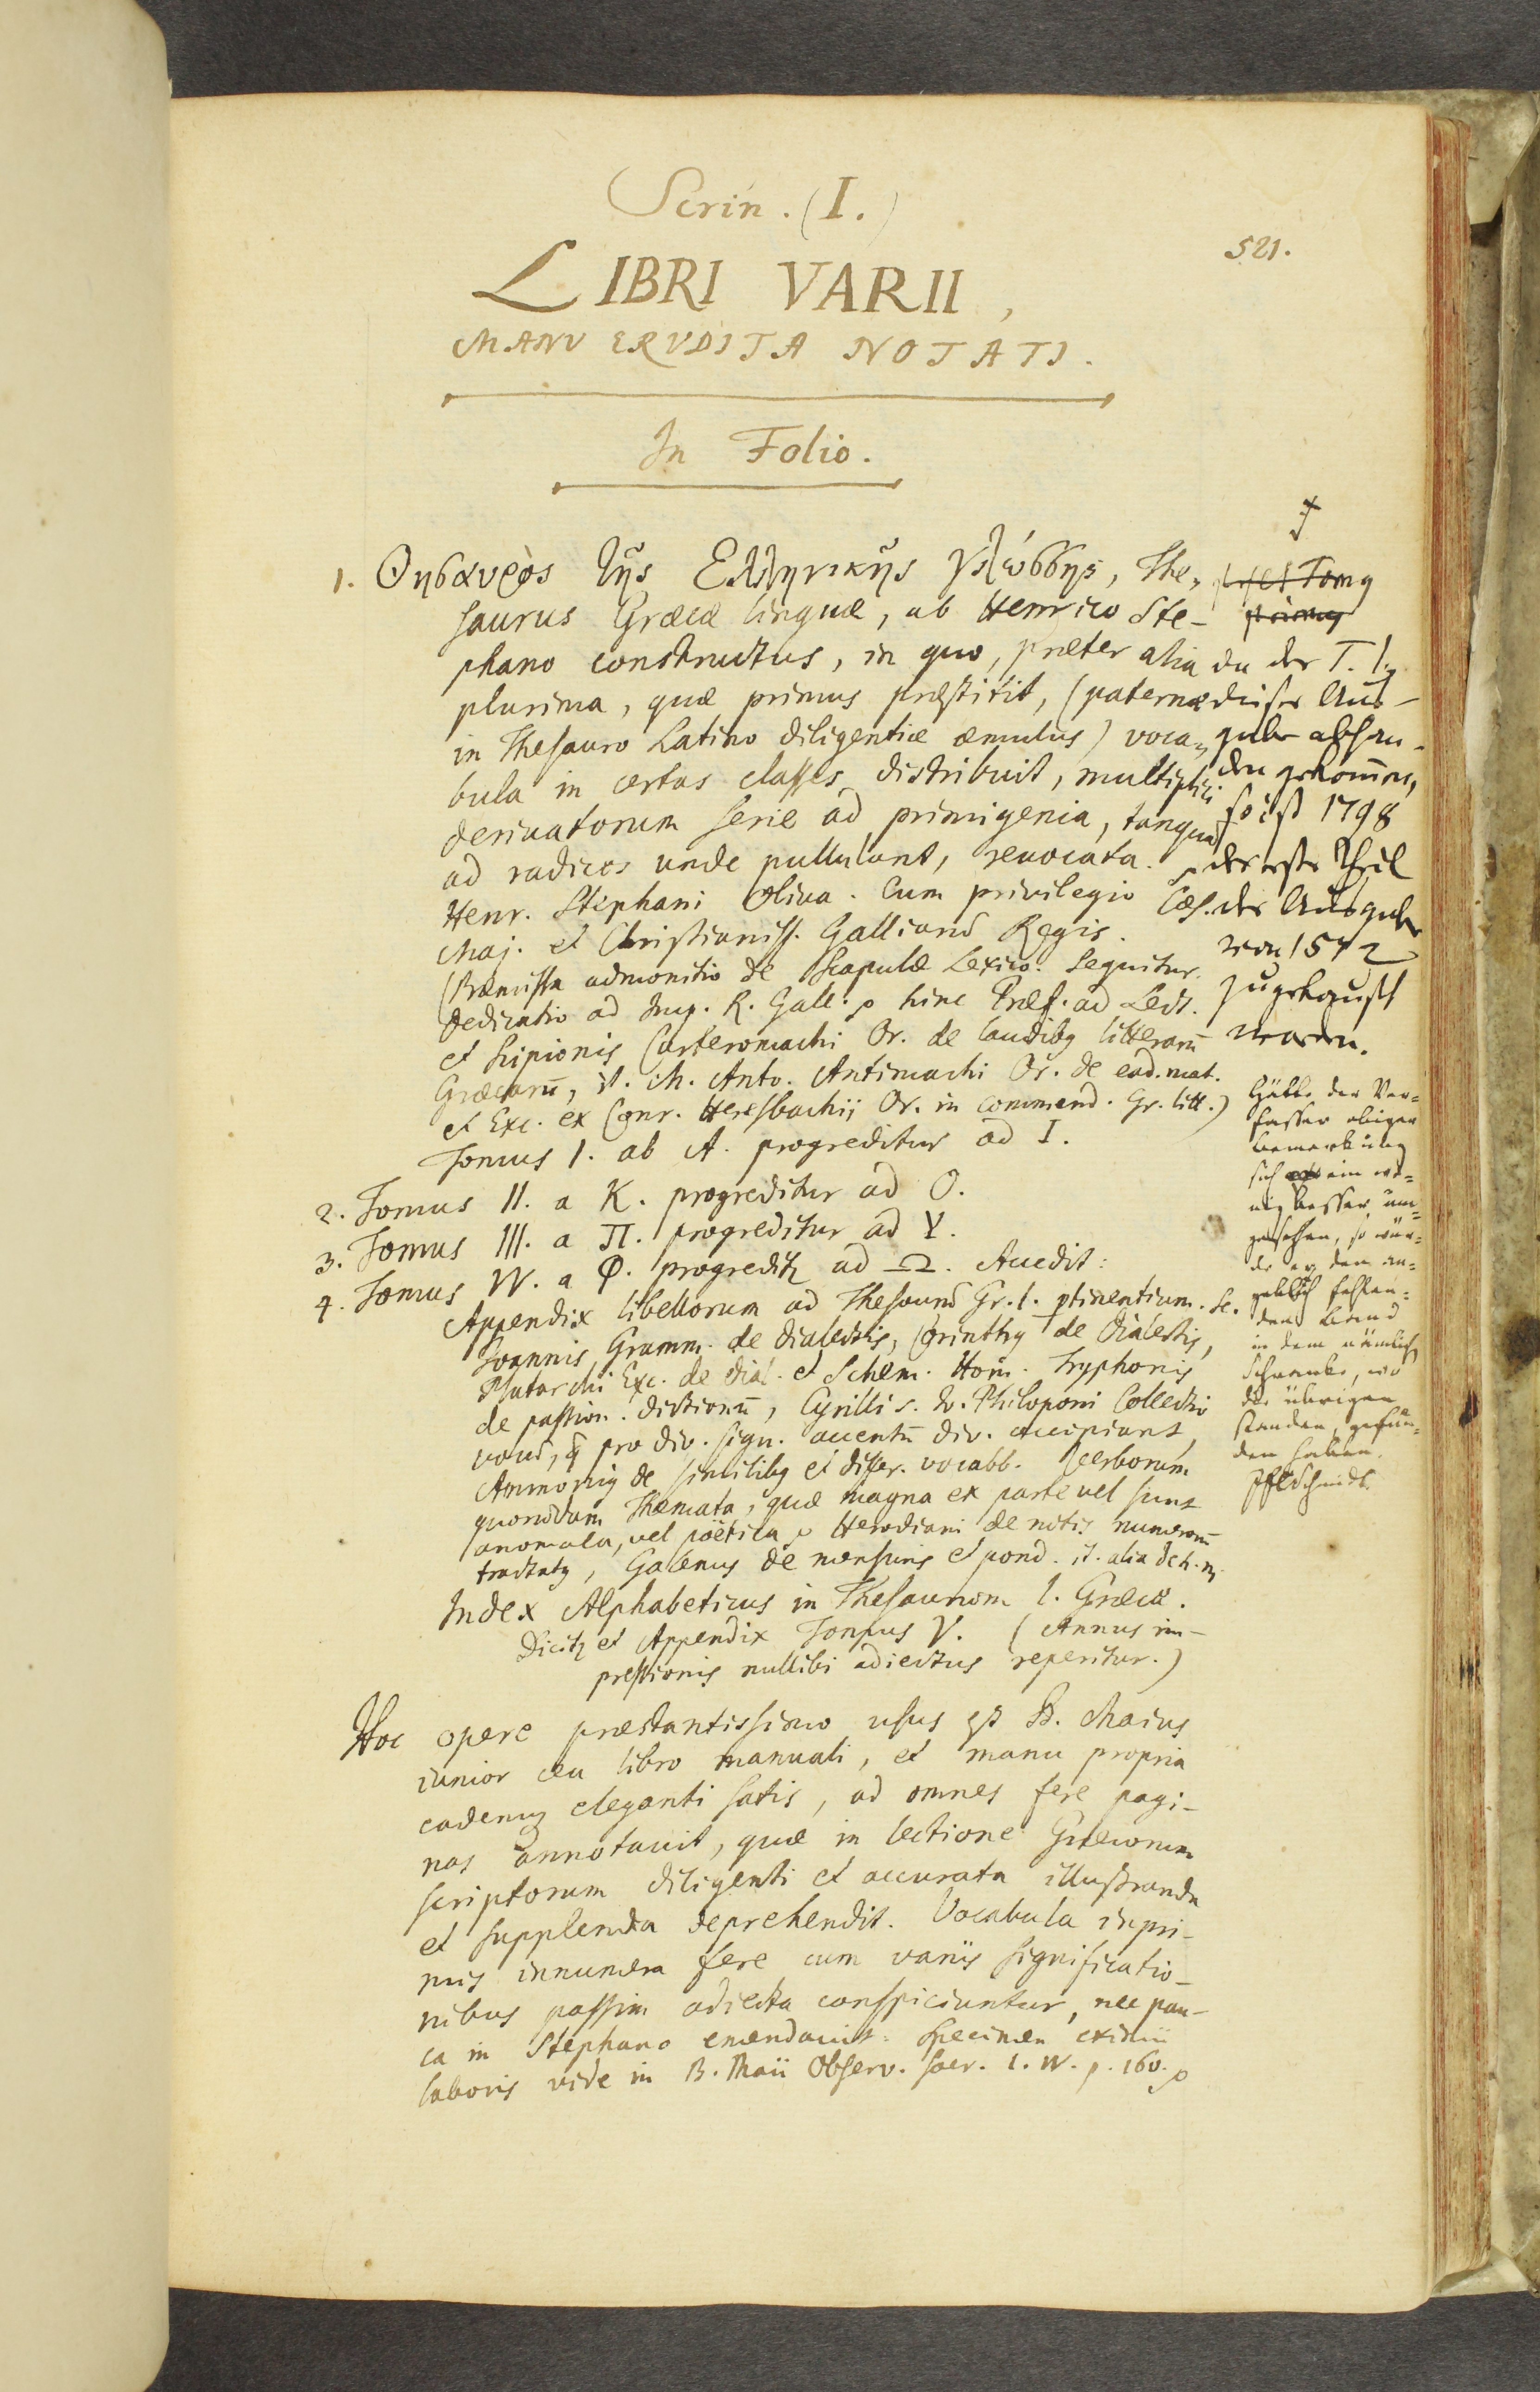 Scrin. (I.)
521.
LIBRI VARII,
MANV ERVDITA NOTATI.
In Folio.
1. Θησαυρὸς τῆς Ἑλληνικῆς γλώσσης, The-
saurus Græcæ linguæ, ab Henrico Ste-
phano constructus, in quo, præter alia
plurima, quæ primus præstitit, (paternæ
in Thesauro Latino diligentiæ æmulus) voca-
bula in certas classes distribuit, multiplici
derivatorum serie ad primigenia, tanquam
ad radices unde pullulant, revocata.
Henr. Stephani Oliva. Cum privilegio Cæs.
Maj. et Christianiss. Galliarum Regis.
(Præmissa admonitio de Scapulæ Lexico. Sequitur
Dedicatio ad Imp. R. Gall. hinc Præf. ad Lect.
et Scipionis Carteromachi Or. de laudibq litterarum̄
Græcarū, it. M. Anto. Antimachi Or. de ead. mat.
et Exc. ex Conr. Heresbachij Or. in commend. Gr. litt.)
Tomus I. ab A. progreditur ad I.
2. Tomus II. a K. progreditur ad O.
3. Tomus III. a Π. progreditur ad Υ.
4. Tomus IV. a Φ. progredit ad Ω. Accedit:
Appendix libellorum ad Thesaurum Gr. l. ptinentium. Sc.
Joannis Gramm. de dialectis, Corinthq de dialectis,
Plutarchi Exc. de dial. et Schem. Hom. Tryphonis
de passion. dictionū, Cyrilli s. Philoponi Collectio
vocum, q pro div. sign. accentū div. accipiunt,
Ammoniq de similibq et differ. vocabb. Verborum
quorundam Themata, quæ magna ex parte vel sunt
anomala, vel poëtica, Herodiani de notis numerorū
tractatq, Galenus de mensuris et pond. it. alia
Index Alphabeticus in Thesaurum l. Græcæ.
Dicit et Appendix Tomus V. (Annus im-
pressionis nullibi adiectus reperitur.)
Hoc opere præstantissimo usus est B. Maius
iunior ceu libro manuali, et manu propria
eademq eleganti satis, ad omnes fere pagi-
nas annotavit, quæ in lectione Græcorum
scriptorum diligenti et accurata illustranda
et supplenda deprehendit. Vocabula inpri-
mis innumera fere cum variis significatio-
nibus passim adiecta conspiciuntur, nec pau-
ca in Stephano emendavit. Specimen eximii
laboris vide in B. Maii Observ. Sacr. l. IV. p. 160.
Tomq
primq
da der T. I.
dieser Aus-
gabe abhan-
den gekom̄en,
so ist 1798
der erste Theil
der Ausgabe
von 1572
zugekauft
worden.
Hätte der Ver-
fasser obiger
Bemerkung
sich ein we-
nig besser um-
gesehen, so wür-
de er den an-
geblich fehlen-
den Band
in dem nämlich
Schranke, wo
die übrigen
standen, gefun-
den haben.